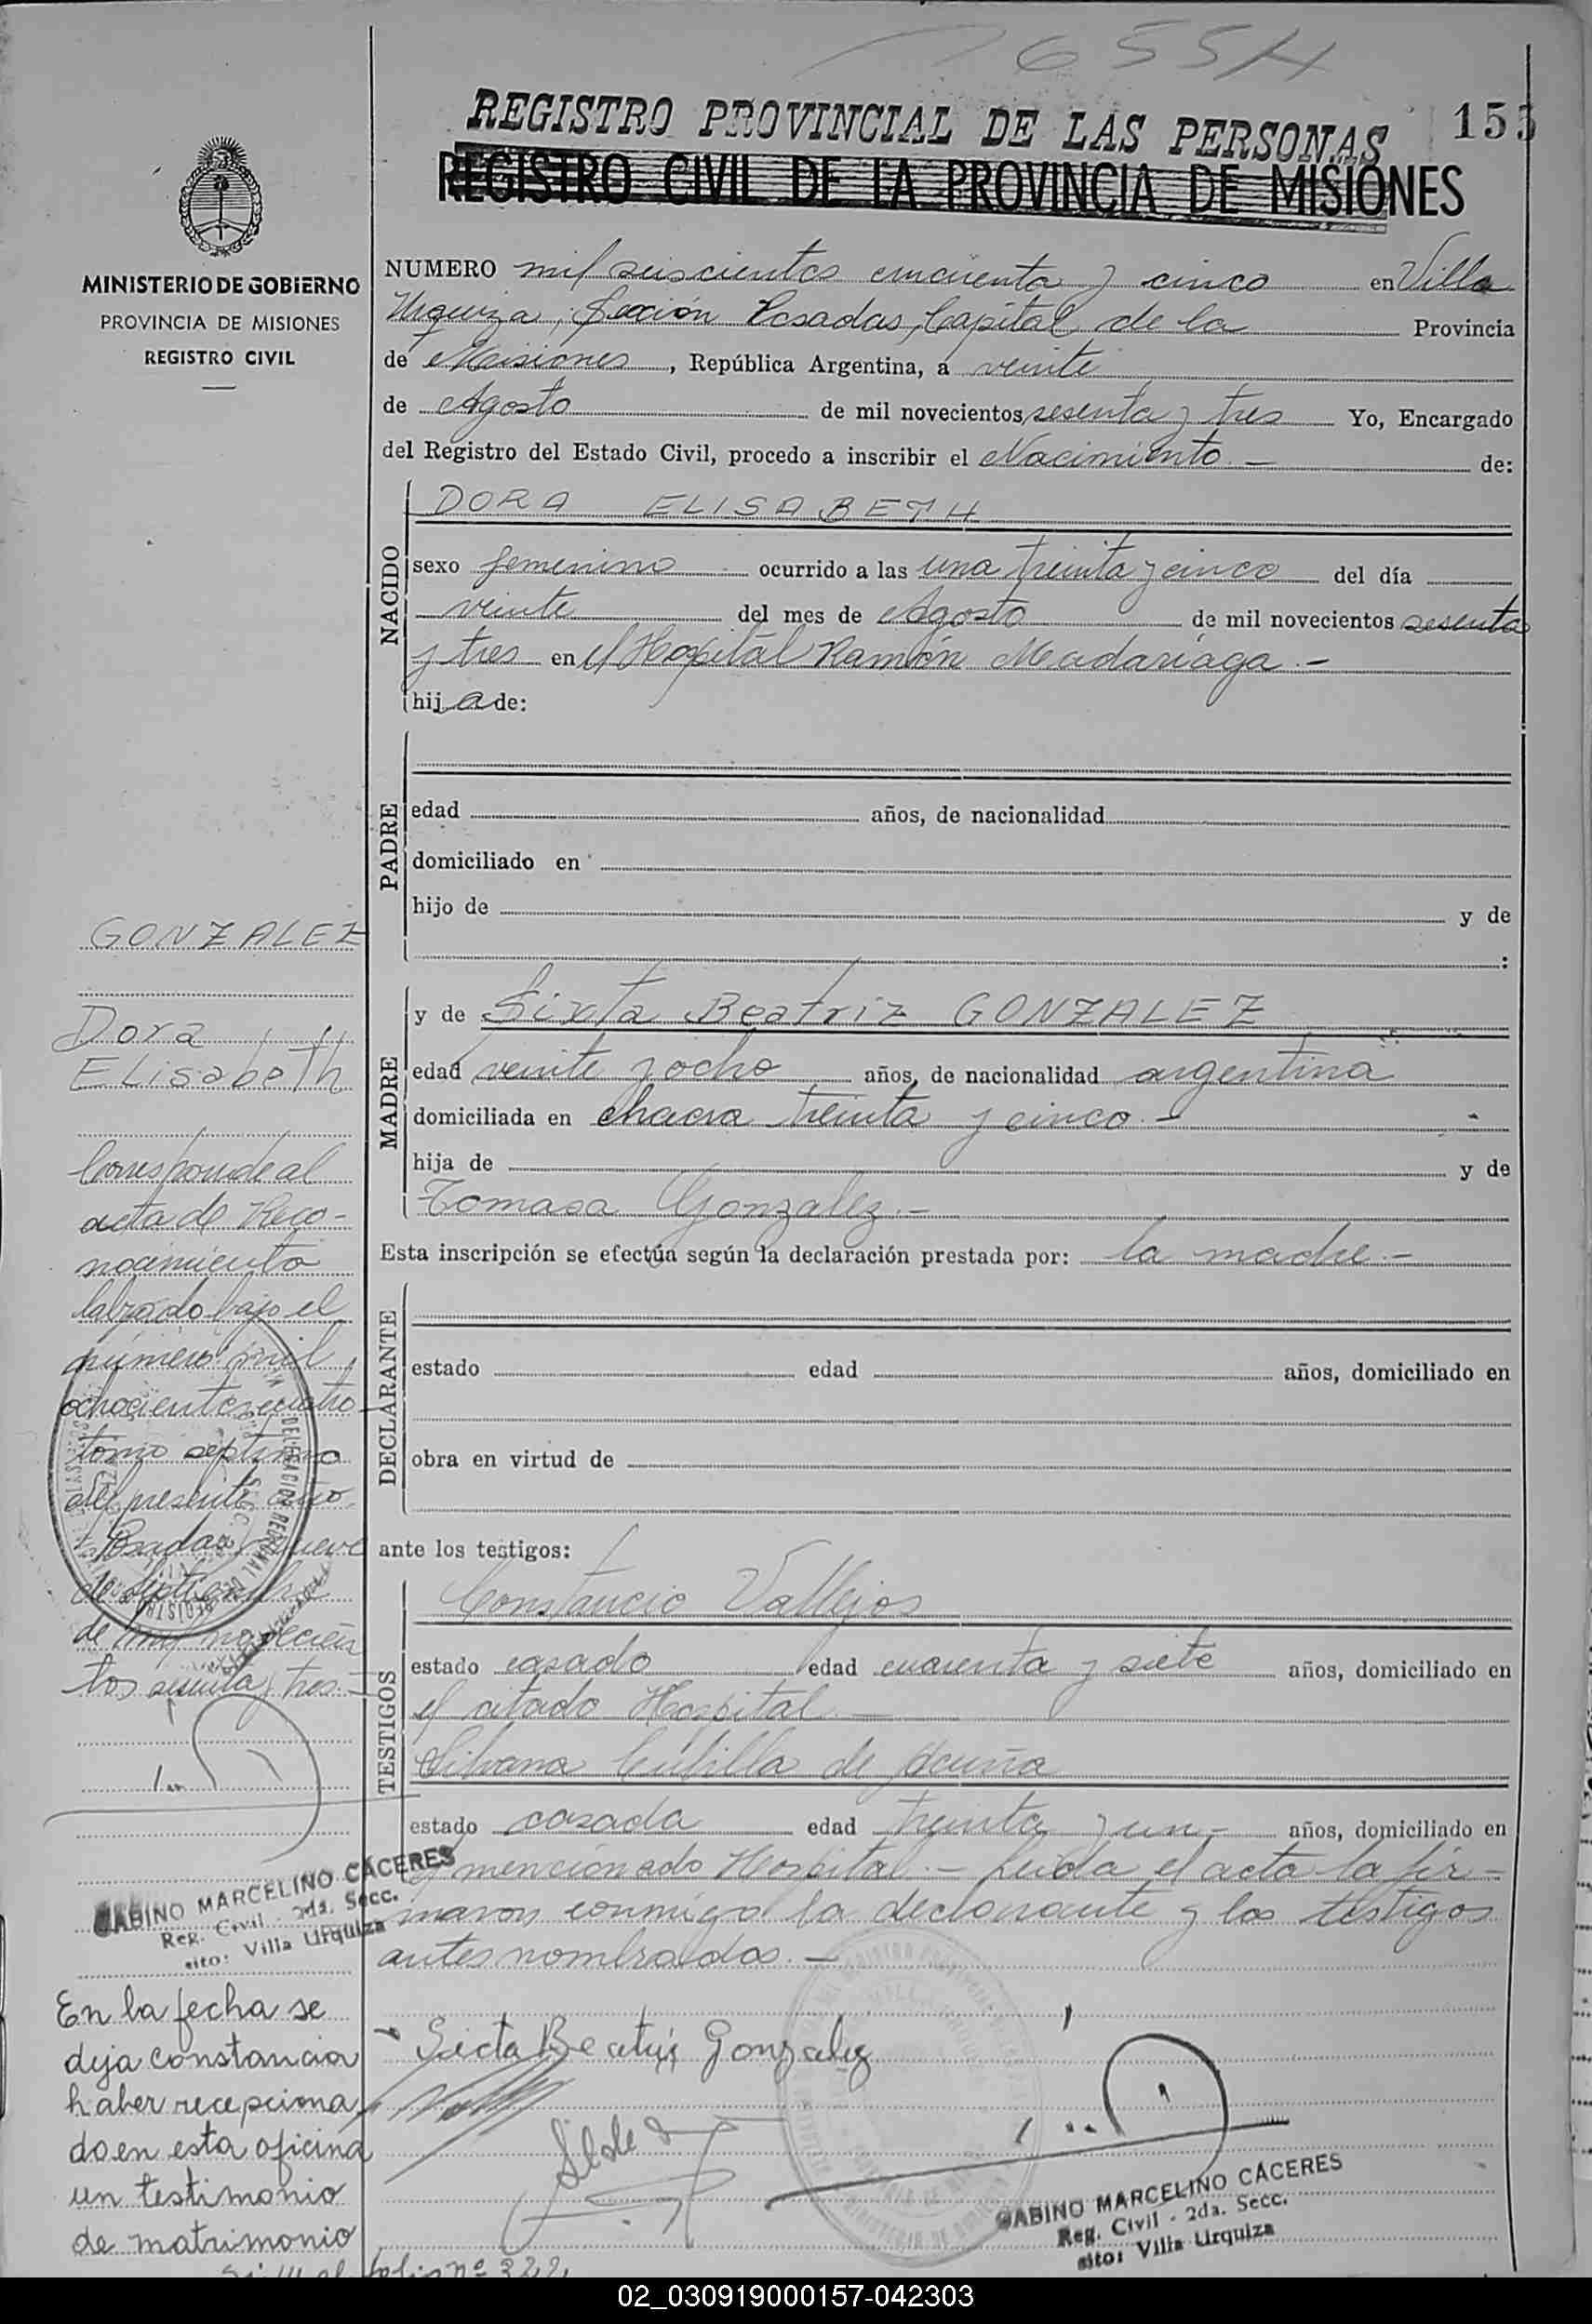 1655H
REGISTRO PROVINCIAL DE LAS PERSONAS
155
REGISTRO CIVIL DE LA PROVINCIA DE MISIONES
MINISTERIO DE GOBIERNO
PROVINCIA DE MISIONES
REGISTRO CIVIL
NUMERO mil seiscientos cincuenta y cinco en Villa
Urquiza, Sección Posadas, Capital de la Provincia
de Misiones, República Argentina, a veinte
de Agosto de mil novecientos sesenta y tres Yo, Encargado
del Registro del Estado Civil, procedo a inscribir el Nacimiento.- de:
NACIDO
DORA ELISABETH
sexo femenino ocurrido a las una treinta y cinco del día
veinte del mes de Agosto de mil novecientos sesenta
y tres en el Hospital Ramón Madariaga.-
hija de:
PADRE
edad años, de nacionalidad
domiciliado en
hijo de y de
:
MADRE
y de Sixta Beatriz GONZALEZ
edad veinte y ocho años, de nacionalidad argentina
domiciliada en chacra treinta y cinco.-
hija de y de
Tomasa Gonzalez.-
Esta inscripción se efectúa según la declaración prestada por: la madre.-
DECLARANTE
estado edad años, domiciliado en
obra en virtud de
ante los testigos:
TESTIGOS
Constancio Vallejos
estado casado edad cuarenta y siete años, domiciliado en
el citado Hospital.-
Silvana Cubilla de Acuña
estado casada edad treinta y un- años, domiciliado en
el mencionado Hospital.- Leída el acta la fir-
maron conmigo la declarante y los testigos
antes nombrados.-
Sicta Beatriz Gonzalez
GABINO MARCELINO CÁCERES
Reg. Civil - 2da. Secc.
sito: Villa Urquiza
GONZALEZ
Dora
Elisabeth
Corresponde al
acta de Reco-
nocimiento
labrado bajo el
número mil
ochocientos cuatro
tomo septimo
del presente año.
Posadas, nueve
de Septiembre
de mil novecien
tos sesenta y tres.-
GABINO MARCELINO CÁCERES
Reg. Civil - 2da. Secc.
sito: Villa Urquiza
En la fecha se
deja constancia
haber recepciona
do en esta oficina
un testimonio
de matrimonio
folio nº 322.
02_030919000157-042303